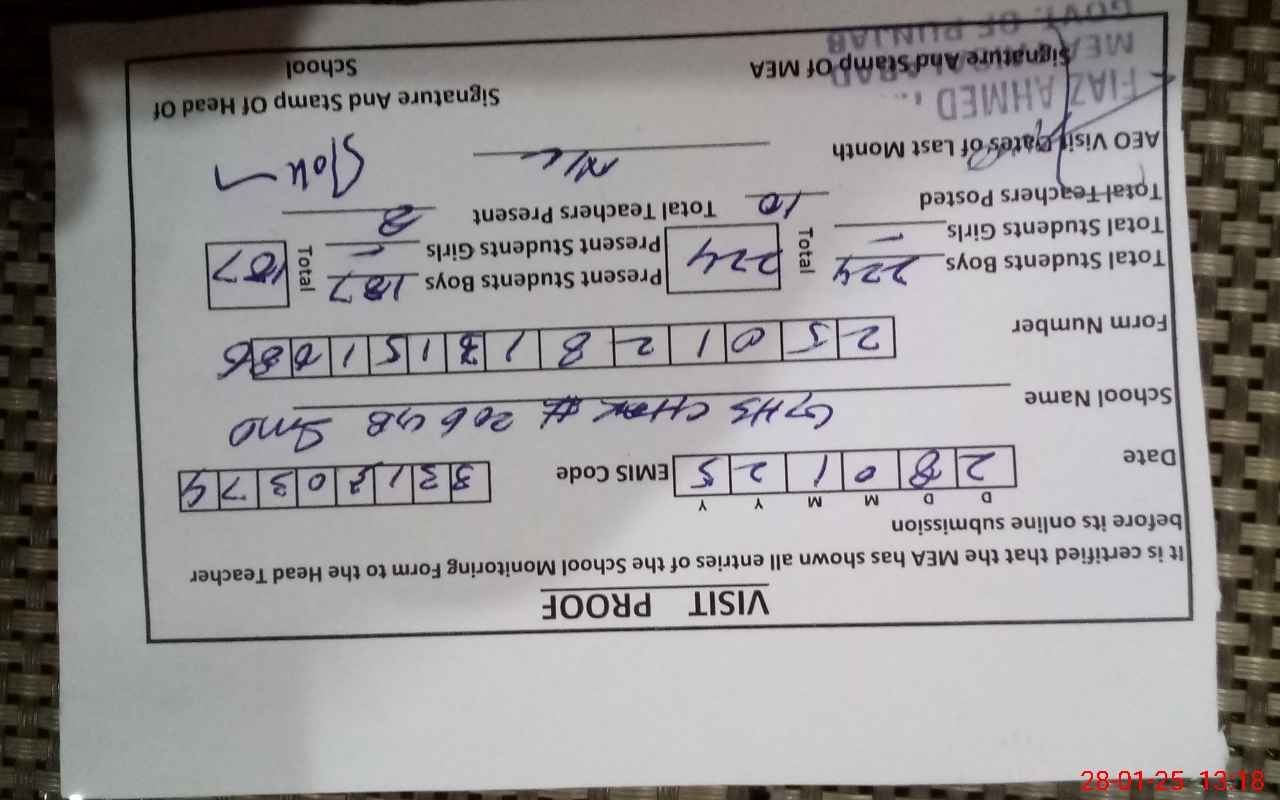 VISIT PROOF
It is certified that the MEA has shown all entries of the School Monitoring Form to the Head Teacher
before its online submission
D D M M Y Y
Date 2 8 0 1 2 5 EMIS Code 3 3 1 2 0 3 7 4
School Name GHS CHAK # 206 GB
Form Number 2 5 0 1 2 8 1 3 1 5 1 0 8 6
Total Students Boys 224 Total 224 Present Students Boys 187 Total 187
Total Students Girls - Present Students Girls -
Total Teachers Posted 10 Total Teachers Present 8
AEO Visit Dates of Last Month
FIAZ AHMED
Signature And Stamp Of MEA
Signature And Stamp Of Head Of
School
MEA
GOVT. OF PUNJAB
28-01-25 13:18